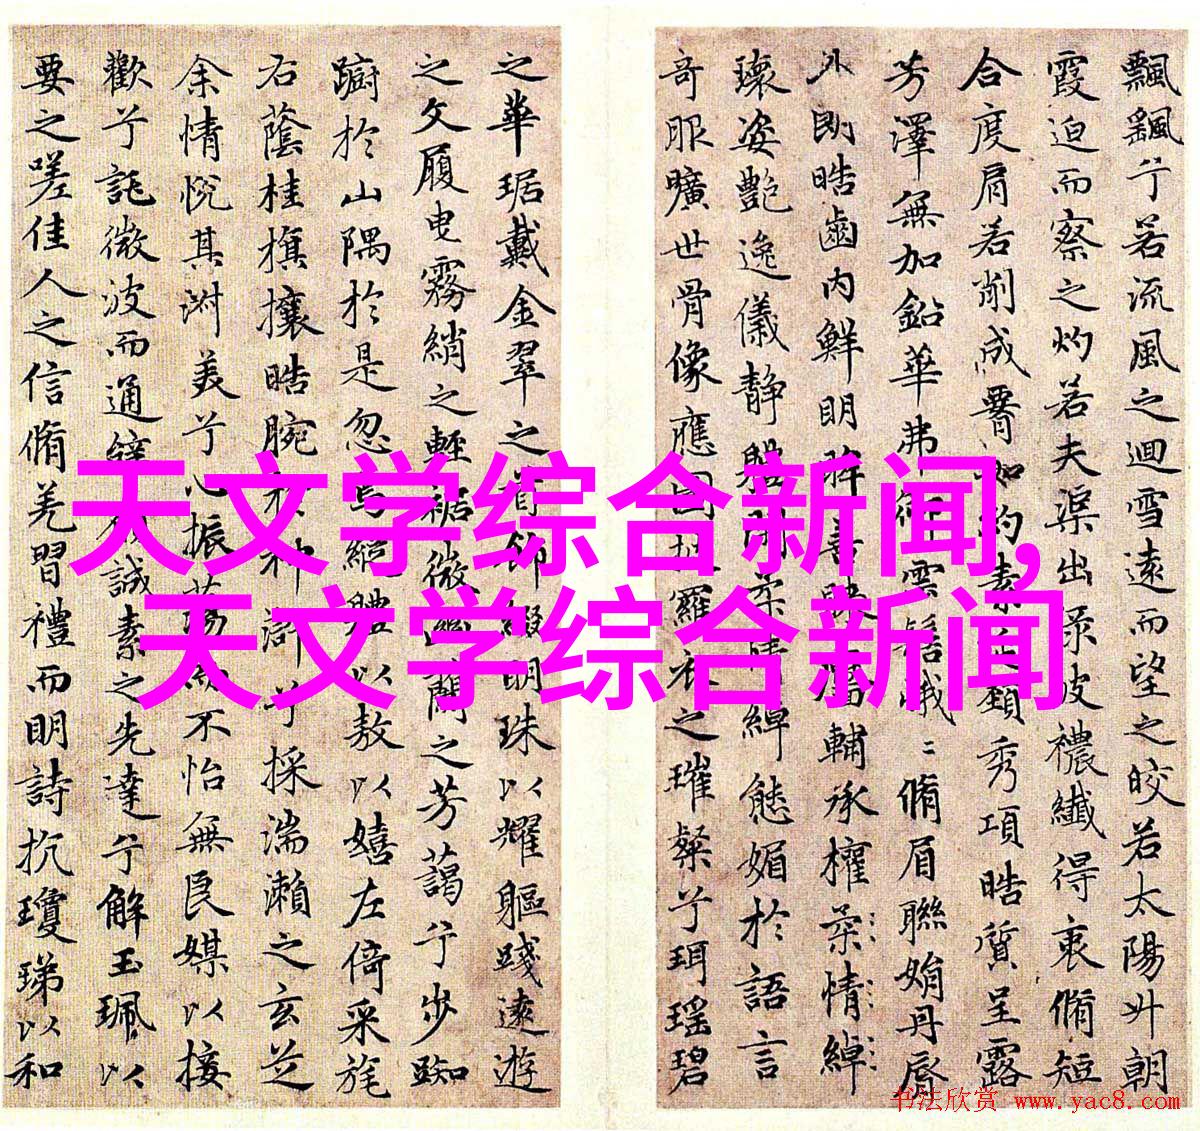 飄飖兮若流風之迴雪遠而望之皎若太陽升朝
霞迫而察之灼若夫渠出淥波禯纖得衷脩短
合度肩若削成如約素延頸秀項皓質呈露
芳澤無加鉛華弗御雲髻峩〻脩眉聯娟丹脣
外朗皓齒內鮮明眸善睞靨輔承權柔情綽
瓌姿艷逸儀静體閑柔情綽態媚於語言
奇服曠世骨像應圖披羅衣之璀粲兮珥瑤碧
之華琚戴金翠之首飾綴明珠以耀軀踐遠遊
之文履曳霧綃之輕裾微幽蘭之芳藹兮步踟
躕於山隅於是忽焉縱體以敖以嬉左倚采旄
右蔭桂旗攘皓腕於神滸兮採湍瀨之玄芝
余情悅其淑美兮心振蕩而不怡無良媒以接
歡兮託微波而通辭願誠素之先達兮解玉珮以
要之嗟佳人之信脩羌習禮而明詩抗瓊珶以和
天文学综合新闻,
天文学综合新闻
书法欣赏 www.yac8.com